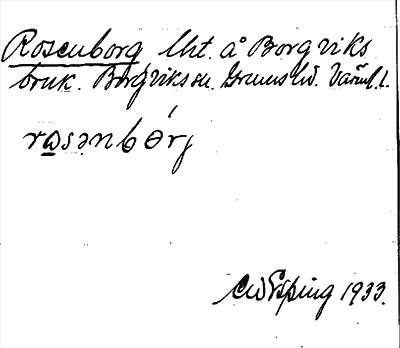 Rosenborg lht. å Borgviks
bruk. Borgviks sn. Grums hd. Värml. l.
rɷsənbórj
CWEsping 1933.